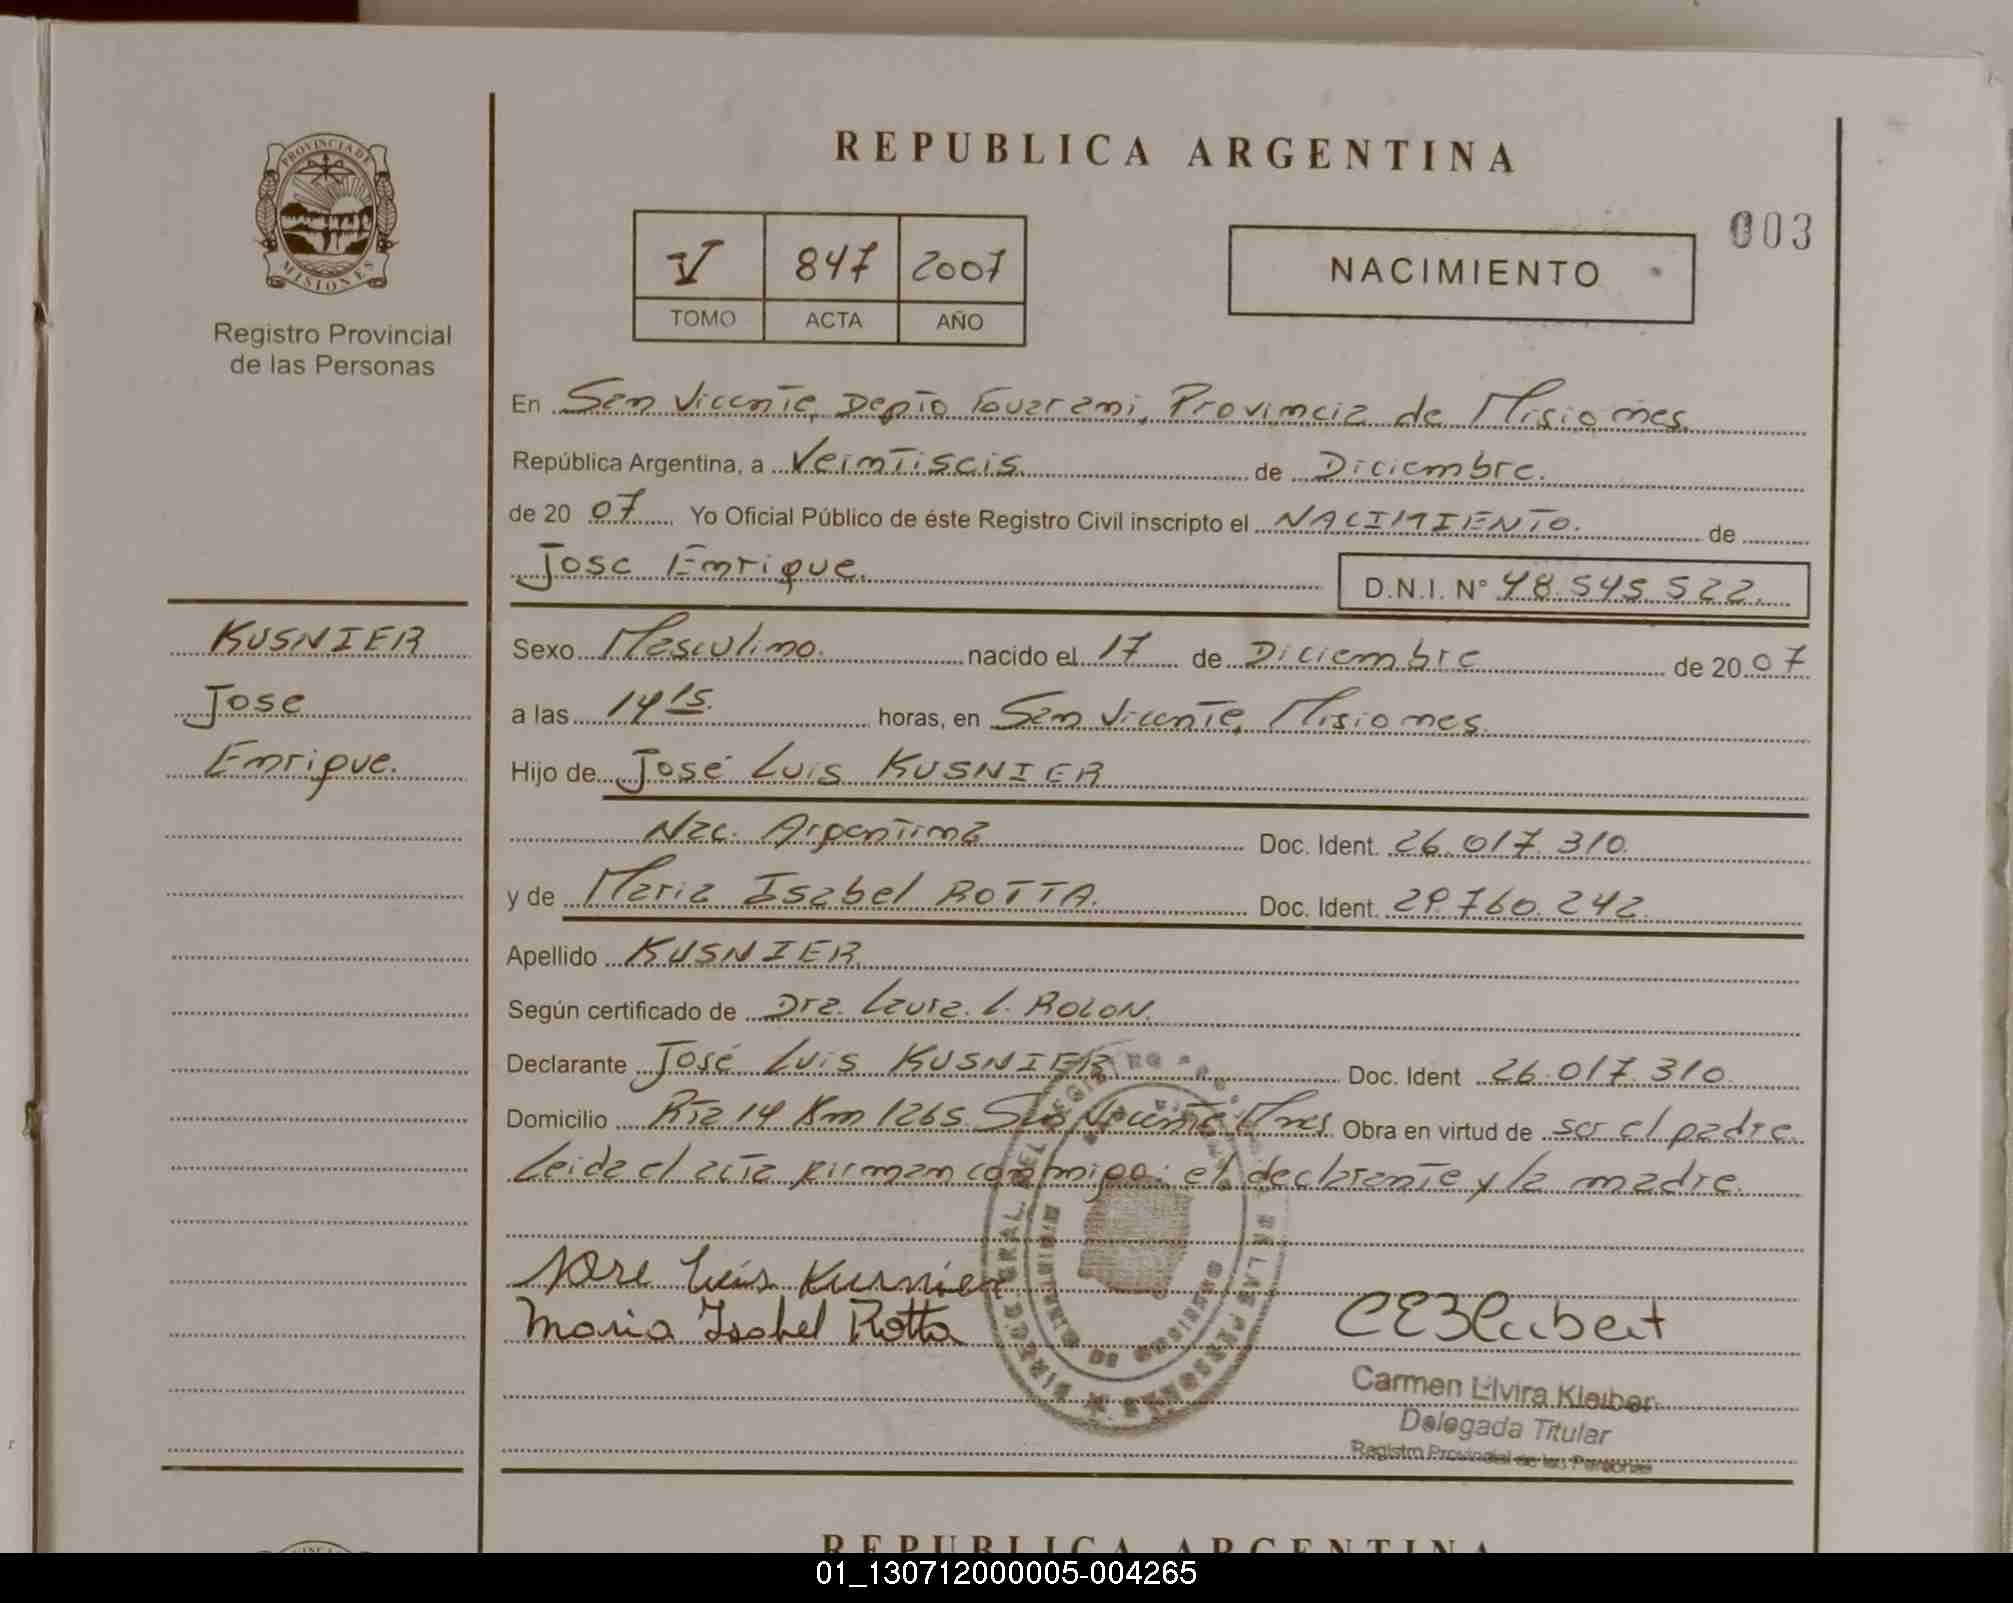 REPUBLICA ARGENTINA
003
PROVINCIA DE
MISIONES
Registro Provincial
de las Personas
V 847 2007
TOMO ACTA AÑO
NACIMIENTO
En San Vicente, Depto Guarani, Provincia de Misiones
República Argentina, a Veintiseis de Diciembre.
de 20 07 Yo Oficial Público de éste Registro Civil inscripto el NACIMIENTO. de
Jose Enrique. D.N.I. Nº 48.545.522.
KUSNIER
Jose
Enrique.
Sexo Masculino. nacido el 17 de Diciembre de 20 07
a las 14 15. horas, en San Vicente, Misiones.
Hijo de José Luis KUSNIER
Nac. Argentina Doc. Ident. 26.017.310.
y de Maria Isabel ROTTA. Doc. Ident. 29.760.242
Apellido KUSNIER
Según certificado de Dra. Laura. L. ROLON.
Declarante José Luis KUSNIER Doc. Ident 26.017.310
Domicilio Rta 14 Km 1265 San Vicente Mnes Obra en virtud de ser el padre.
Leida el acta firman conmigo: el declarante y la madre.
Jose Luis Kusnier
Maria Isabel Rotta
Carmen Elvira Kleiber
Delegada Titular
Registro Provincial de las Personas
REPUBLICA ARGENTINA
01_130712000005-004265